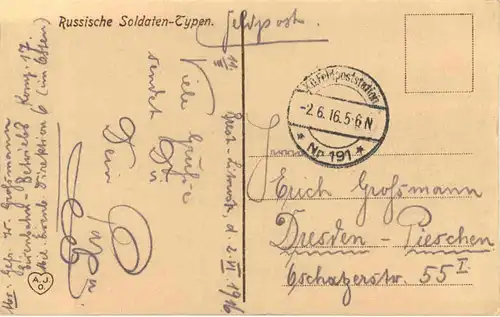 Russische Soldaten-Typen.
Feldpost.
K.D. Feldpoststation
-2.6.16.5-6N
* No 191 *
Brest-Litowsk, d. 2. VI 1916
Viele Grüße
sendet Dir
Dein
Papa
Erich Großmann
Dresden-Pieschen
Oschatzerstr. 55 I.
Abs: Gefr. W. Großmann
Eisenbahn-Betriebs Komp. 17.
Mil. Eisenb. Direktion 6 (im Osten)
A.J.O.